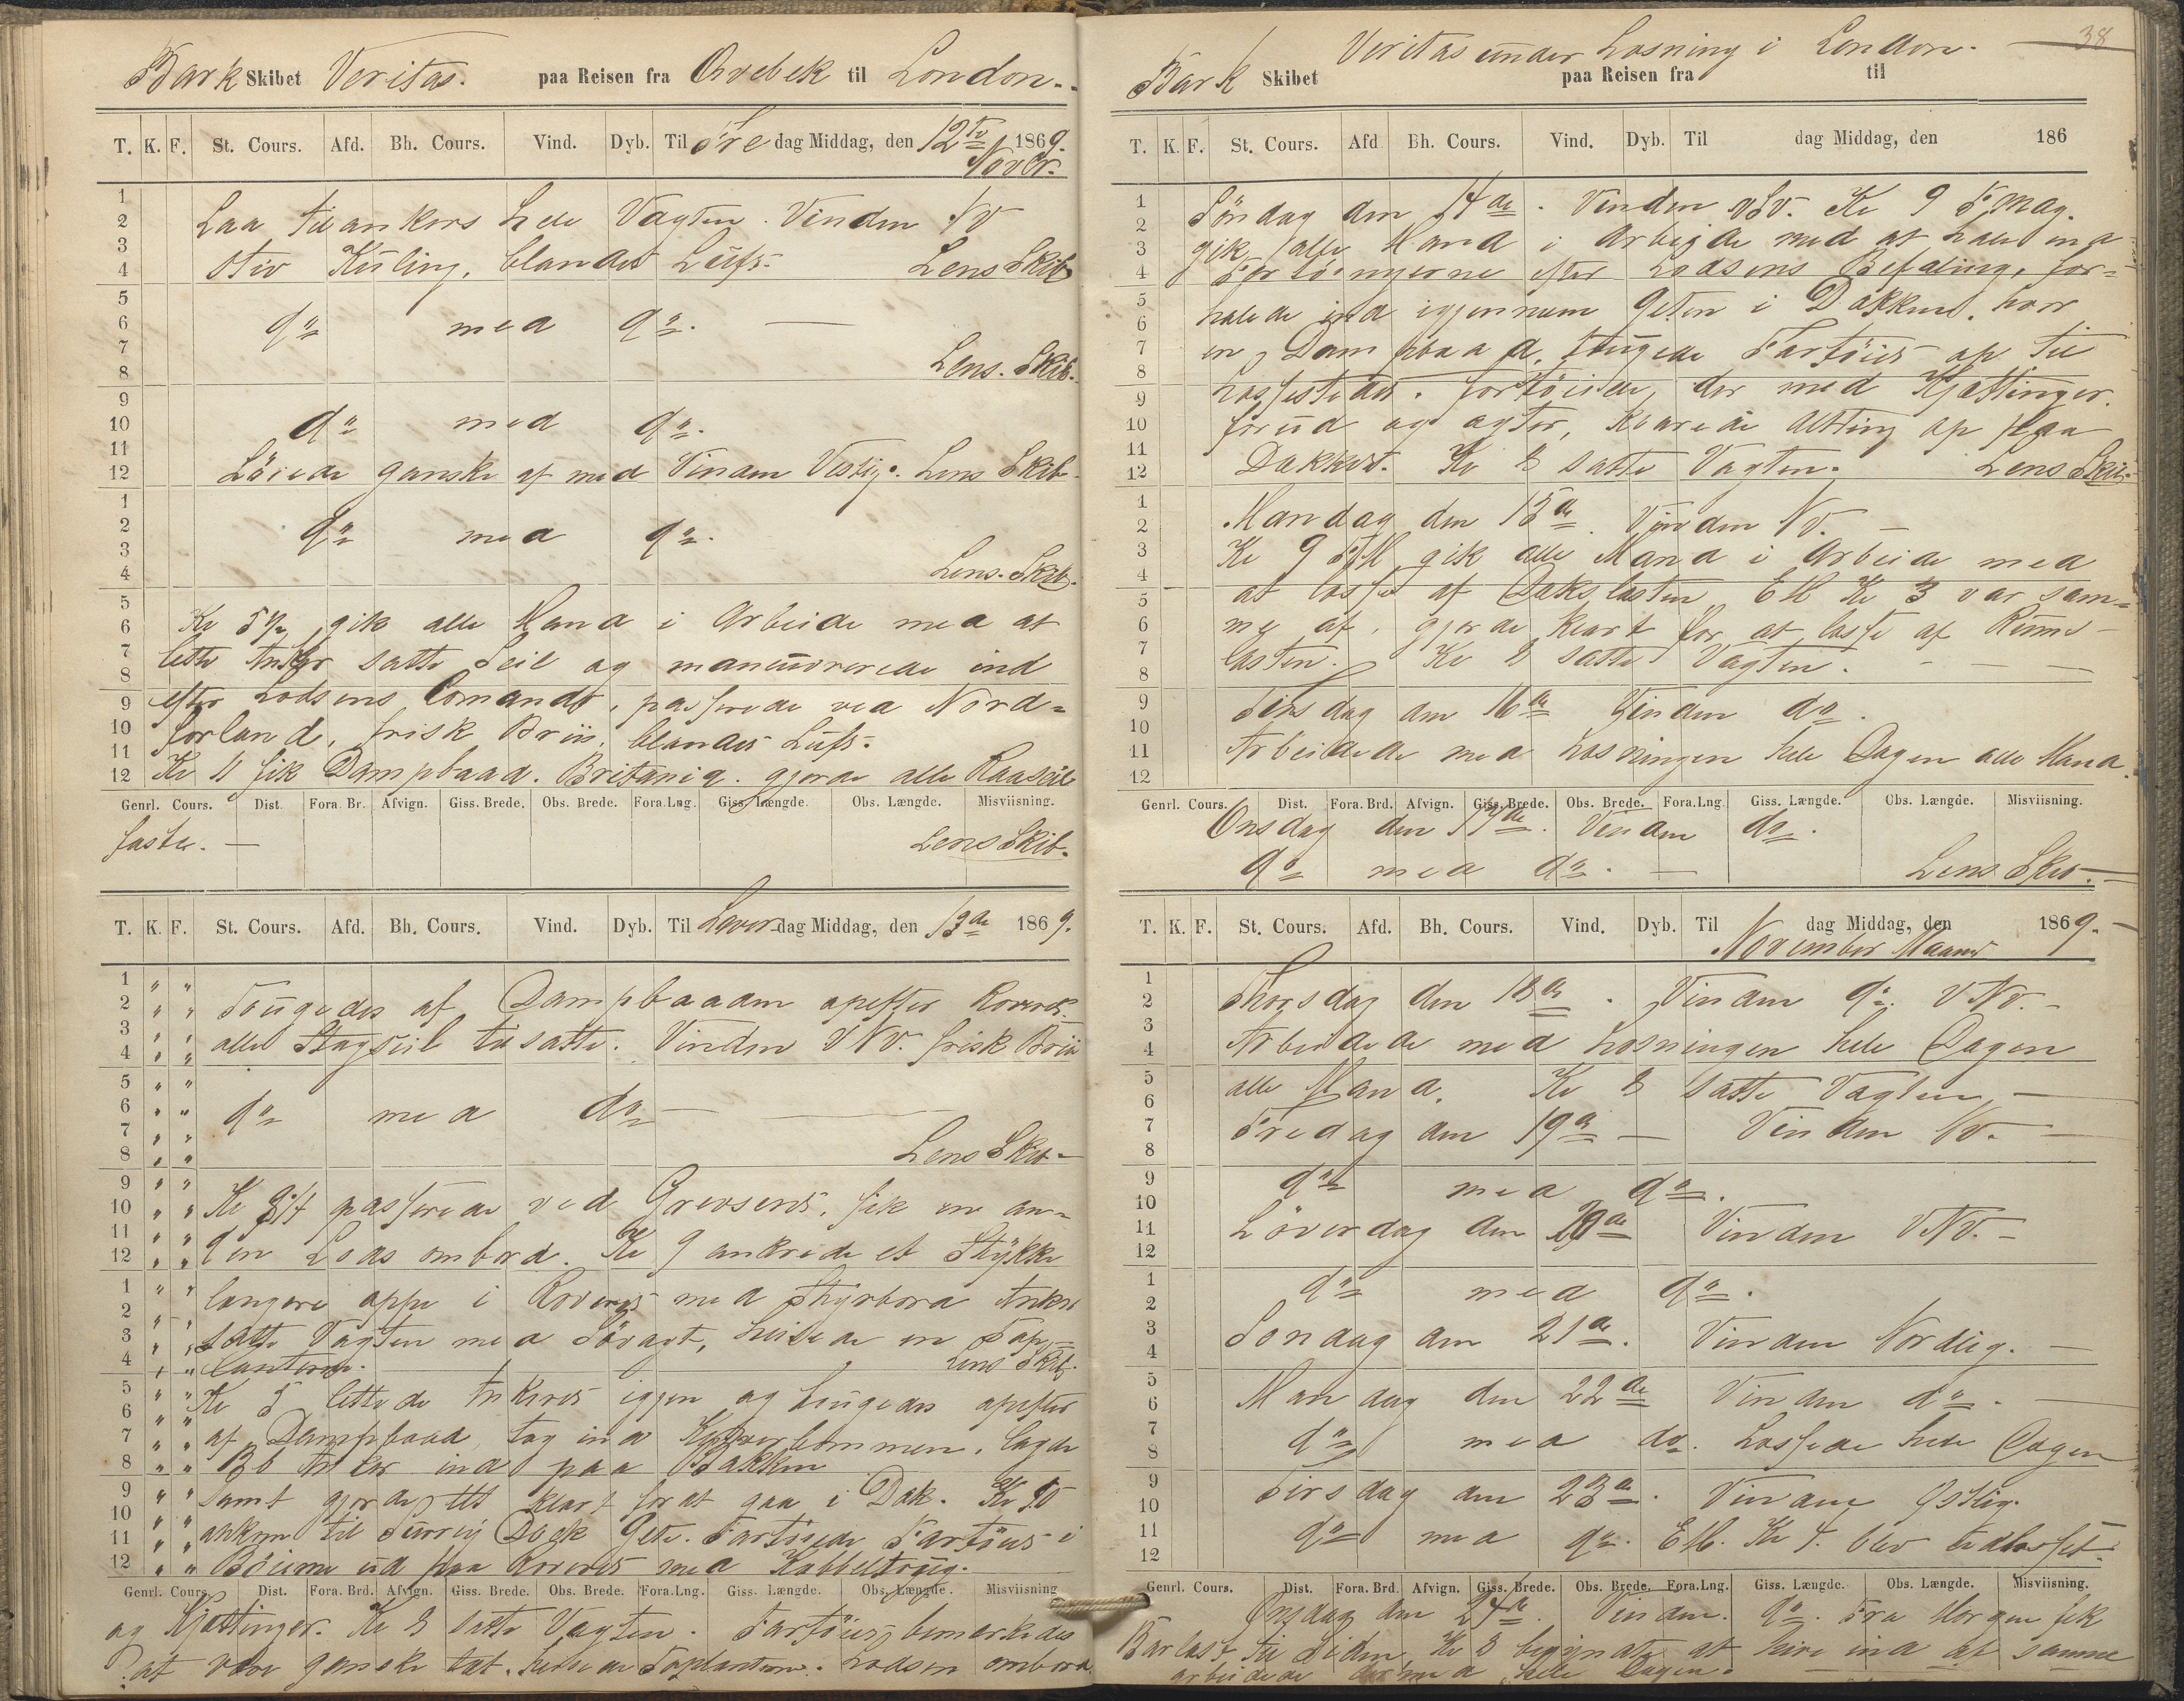 Bark Skibet Veritas. paa Reisen fra Örebek til London.
T. K. F. St. Cours. Afd. Bh. Cours. Vind. Dyb. Til Fre dag Middag, den 12te 1869.
Novbr.
1
2 Laa tilankers hele Vagten. Vinden NV
3
4 Stiv Kuling, blandet Luft. Lens Skib
5
6 do med do. —
7
8 Lens. Skib.
9
10 do med do.
11
12 Löiede ganske af med Vinden Vestlig. Lens Skib
1
2 do med do.
3
4 Lens. Skib.
5
6 Kl 5½ gik alle Mand i Arbeide med at
7
8 lette Anker satte Seil og maneuvrerede ind
9 efter Lodsens Comando, passerede ved Nord-
10 forland, frisk Briis, blandet Luft.
11
12 Kl 11 fik Dampbaad. Britania. gjorde alle Raaseil
Genrl. Cours. Dist. Fora. Br. Afvign. Giss. Brede. Obs. Brede. Fora. Lng. Giss. Længde. Obs. Længde. Misviisning.
faste. — Lens Skib.
T. K. F. St. Cours. Afd. Bh. Cours. Vind. Dyb. Til Löver dag Middag, den 13de 1869.
1
2 Tougedes af Dampbaaden opefter Reveret
3
4 alle Stagseil tilsatte. Vinden VNV. frisk Briis
5
6 do med do —
7
8 Lens Skib —
9
10 Kl passerede ved Grevsend, fik en an-
11
12 den Lods ombord. Kl 9 ankrede et Stykke
1 længere oppe i Reveret med Styrbord Anker
2
3 satte Vagten med Sövagt, heisede en Top-
4 lanterne. Lens Skib.
5 Kl 5 lettede Ankeret igjen og tougedes opefter
6
7 af Dampbaad, tog ind Klyverbommen, lagde
8 BB Anker ind paa Bakken
9 samt gjorde alt klart for at gaa i Dok. Kl 10
10
11 ankom til Surrey Dock Gete. Fortöiede Fartöiet i
12 Böierne ud paa Reveret med Kabbeltoug.
Genrl. Cours. Dist. Fora. Brd. Afvign. Giss. Brede. Obs. Brede. Fora. Lng. Giss. Længde. Obs. Længde. Misviisning
og Kjættinger. Kl 8 satte Vagten. Fartöiet bemerkedes
at være ganske tæt. heisede Toplanterne. Lodsen ombord.
38
Bark Skibet Veritas under Losning i London.
paa Reisen fra til
T. K. F. St. Cours. Afd Bh. Cours. Vind. Dyb. Til dag Middag, den 186
1 Söndag den 14de. Vinden VSV. Kl 9 Formag.
2
3 gik alle Mand i Arbeide med at hale ind
4 Fortöiningerne efter Lodsens Befaling, for-
5
6 halede ind igjennem Geten i Dokken, hvor
7 en Dampbaad tougede Fartöiet op til
8
9 Lossestedet. fortöiede, der med Kjættinger.
10 forud og agter, klarede Alting op paa
11
12 Dækket. Kl 8 satte Vagten. Lens Skib.
1
2 Mandag den 15de. Vinden NV. —
3 Kl 9 FM gik alle Mand i Arbeide med
4
5 at losse af Dækslasten EM Kl 3 var sam-
6 me af, gjorde klart for at losse af Rums-
7
8 lasten. Kl 8 satte Vagten. — — —
9
10 Tirsdag den 16de Vinden do.
11 Arbeidede med Losningen hele Dagen alle Mand.
12
Genrl. Cours. Dist. Fora. Brd. Afvign. Giss. Brede. Obs. Brede. Fora. Lng. Giss. Længde. Obs. Længde. Misviisning.
Onsdag den 17de. Vinden do.
do med do. — Lens Skib. —
T. K. F. St. Cours. Afd. Bh. Cours. Vind. Dyb. Til dag Middag, den 1869.
November Maaned
1
2 Thorsdag den 18de. Vinden do. VNV. —
3
4 Arbeidede med Losningen hele Dagen
5
6 alle Mand. Kl 8 satte Vagten, —
7 Fredag den 19de — Vinden NV. —
8
9 do med do.
10
11 Löverdag den 20de Vinden VNV. —
12
1 do med do.
2
3 Söndag den 21de. Vinden Nordlig. —
4
5
6 Mandag den 22de Vinden do. —
7
8 do med do. Lossede hele Dagen
9
10 Tirsdag den 23de. Vinden Östlig.
11 do med do. EM. Kl 4. blev udlosset.
12
Genrl. Cours. Dist. Fora. Brd. Afvign. Giss. Brede. Obs. Brede. Fora. Lng. Giss. Længde. Obs. Længde. Misviisning.
Onsdag den 24de. Vinden. do. Fra Morgen fik
Barlast til Siden, Kl 8 begynte at hive ind af samme
arbeidede dermed hele Dagen.